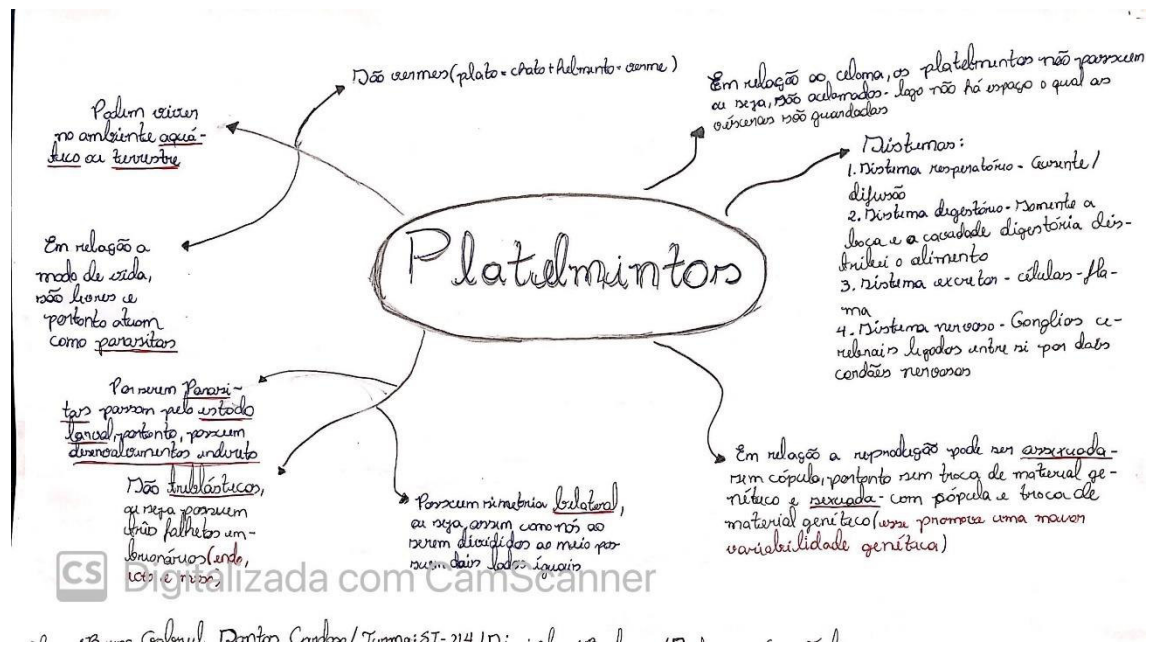 São vermes (plato = chato + helminto = verme)
Podem viver
no ambiente aquá-
tico ou terrestre
Em relação a
modo de vida,
são livres e
portanto atuam
como parasitas
Por serem Parasi-
tas passam pelo estado
larval, portanto, possuem
desenvolvimentos indireto
São triblásticos,
ou seja possuem
três folhetos em-
brionários (endo,
ecto e meso,
Possuem simetria bilateral,
ou seja, assim como nós ao
serem divididos ao meio pos-
suem dois lados iguais
Platelmintos
Em relação ao celoma, os platelmintos não possuem
ou seja, são acelomados - logo não há espaço o qual as
vísceras são guardadas
Sistemas:
1. Sistema respiratório - Ausente /
difusão
2. Sistema digestório - Somente a
boca e a cavidade digestória dis-
tribui o alimento
3. Sistema excretor - células - fla-
ma
4. Sistema nervoso - Gânglios ce-
rebrais ligados entre si por dois
cordões nervosos
Em relação a reprodução pode ser assexuada -
sem cópula, portanto sem troca de material ge-
nético e sexuada - com pópula e troca de
material genético (esse promove uma maior
variabilidade genética)
CS Digitalizada com CamScanner